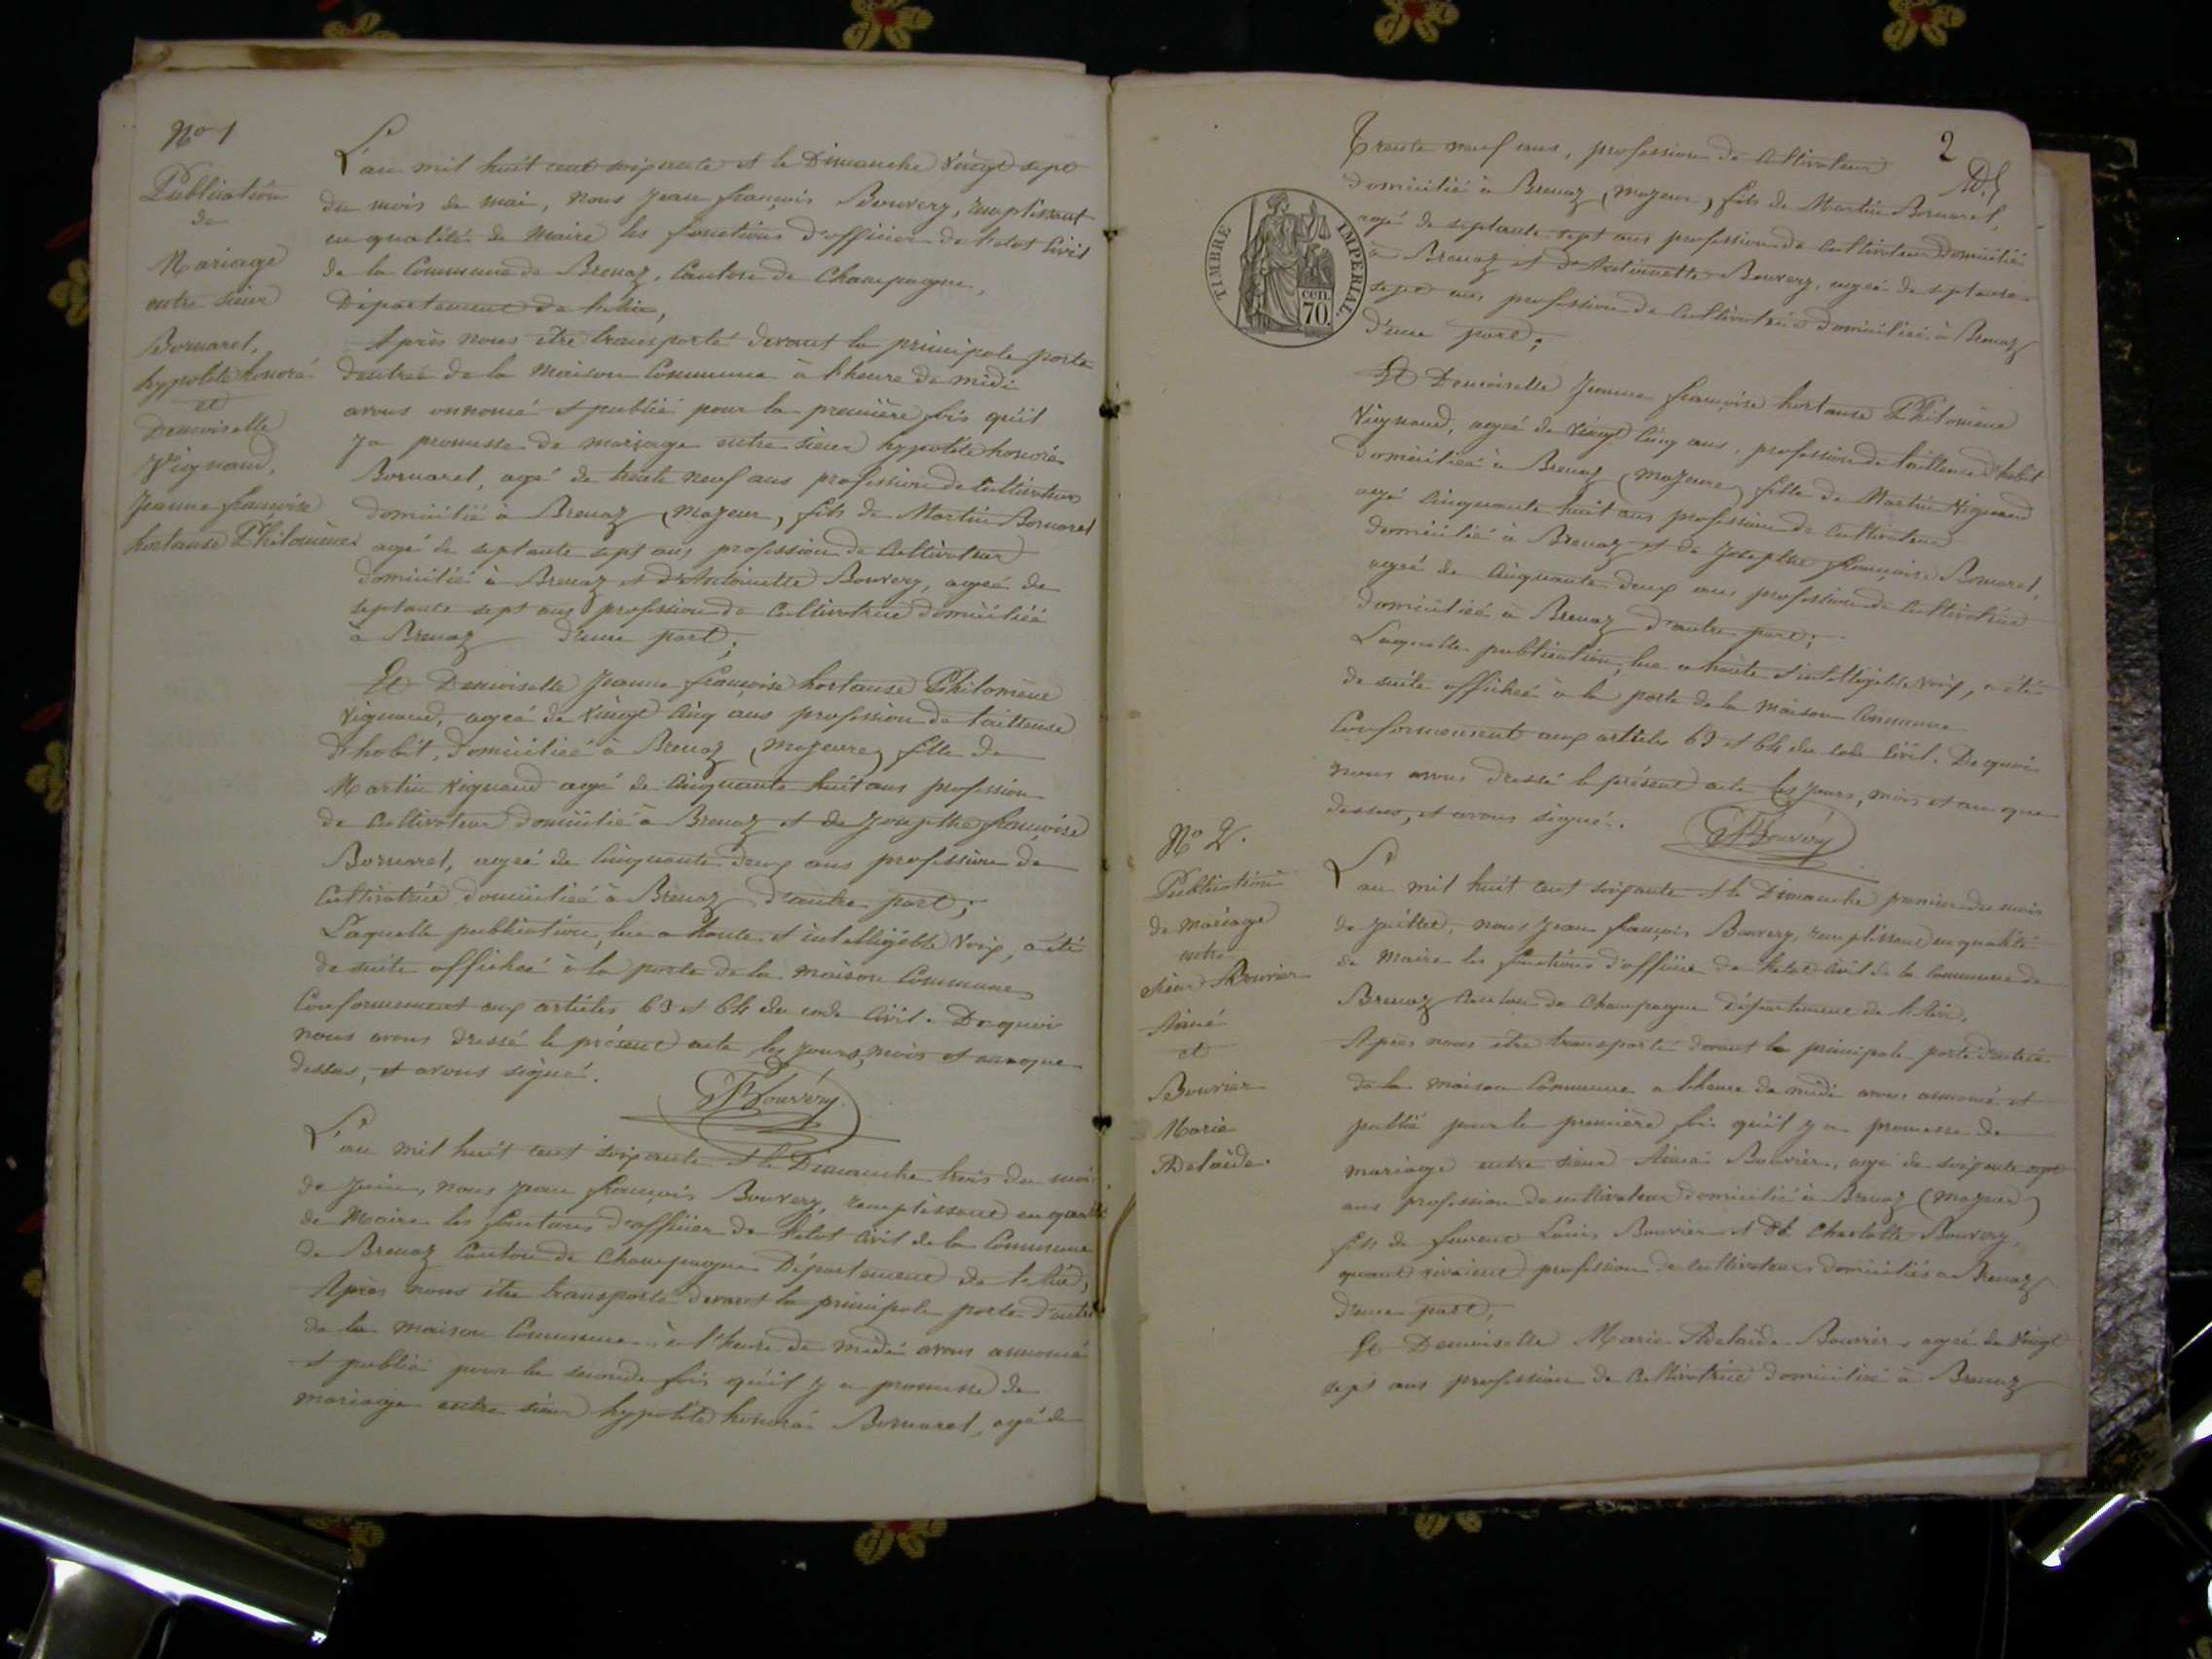 No 1
Publication
de
Mariage
entre sieur
Bornaret,
hypolite honoré
et
Demoiselle
Vignand,
Jeanne françoise
hortanse Philomène
L'an mil huit cent soixante et le Dimanche Vingt sept
du mois de mai, nous Jean françois Bouvery, remplissant
en qualité de Maire les fonctions d'officier de l'etat Civil
de la Commune de Brenaz, Canton de Champagne,
Département de l'Ain,
Après nous être transporté devant la principale porte
d'entrée de la Maison Commune à l'heure de midi
avons annoncé et publié pour la première fois qu'il
y a promesse de mariage entre sieur hypolite honoré
Bornaret, agé de trente neuf ans profession de Cultivateur
domicilié à Brenaz (majeur), fils de Martin Bornaret
agé de septante sept ans profession de Cultivateur
domicilié à Brenaz et d'Antoinette Bouvery, ageé de
septante sept ans profession de Cultivatrice domiciliéé
à Brenaz d'une part;
Et Demoiselle Jeanne françoise hortanse Philomène
Vignand, ageé de Vingt Cinq ans profession de tailleuse
d'habit, domiciliéé à Brenaz (majeure) fille de
Martin Vignand agé de Cinquante huit ans profession
de Cultivateur domicilié à Brenaz et de Josephte françoise
Bornaret, ageé de Cinquante deux ans profession de
Cultivatrice domiciliéé à Brenaz d'autre part;
Laquelle publication, lue a haute et intelligible Voix, a été
de suite affichéé à la porte de la maison Commune
Conformement aux articles 63 et 64 du code Civil. De quoi
nous avons dressé le présent acte les jours, mois et an que
dessus, et avons signé.
Bouvery
L'an mil huit cent soixante et le Dimanche trois du mois
de Juin, nous Jean françois Bouvery, remplissant en qualité
de Maire les fonctions d'officier de l'etat Civil de la Commune
de Brenaz Canton de Champagne Département de l'Ain,
Après nous être transporté devant la principale porte d'entré
de la maison Commune, à l'heure de midi avons annoncé
et publié pour la seconde fois qu'il y a promesse de
mariage entre sieur hypolite honoré Bornaret, agé de
2
TIMBRE IMPERIAL
70 cen.
Trente neuf ans, profession de Cultivateur
domicilié à Brenaz (majeur) fils de Martin Bornaret,
agé de septante sept ans profession de Cultivateur domicilié
à Brenaz et d'Antoinette Bouvery, ageé de septante
sept ans profession de Cultivatrice domiciliéé à Brenaz
d'une part;
Et Demoiselle Jeanne françoise hortanse Philomène
Vignand, ageé de Vingt Cinq ans, profession de tailleuse d'habit
domiciliéé à Brenaz (majeure) fille de Martin Vignand
agé Cinquante huit ans profession de Cultivateur
domicilié à Brenaz et de Josephte françoise Bornaret,
ageé de Cinquante deux ans profession de Cultivatrice
domiciliéé à Brenaz d'autre part;
Laquelle publication, lue a haute et intelligible voix, a été
de suite affichéé à la porte de la maison Commune
Conformement aux articles 63 et 64 du code Civil. De quoi
nous avons dressé le présent acte les jours, mois et an que
dessus, et avons signé.
Bouvery
No 2.
Publication
de mariage
entre
sieur Bouvier
Aimé
et
Bouvier
Marie
Adelaïde.
L'an mil huit cent soixante et le Dimanche premier du mois
de juillet, nous Jean françois Bouvery, remplissant en qualité
de Maire les fonctions d'officier de l'etat Civil de la Commune de
Brenaz Canton de Champagne Département de l'Ain,
Après nous être transporté devant la principale porte d'entrée
de la maison Commune a l'heure de midi avons annoncé et
publié pour la première fois qu'il y a promesse de
mariage entre sieur Aimé Bouvier, agé de soixante sept
ans profession de cultivateur domicilié à Brenaz (majeur)
fils de Louis Bouvier et de Charlotte Bouvery,
quand vivaient profession de cultivateurs domiciliés a Brenaz
d'une part,
Et Demoiselle Marie Adelaïde Bouvier, ageé de Vingt
sept ans profession de Cultivatrice domiciliéé à Brenaz